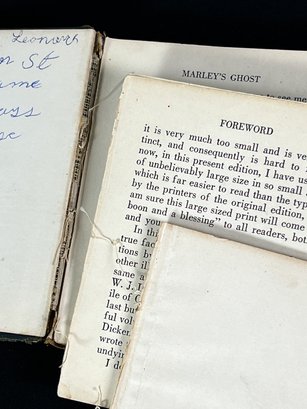 Leonor
St
ass
MARLEY'S GHOST
to see me
FOREWORD
it is very much too small and is ve
tinct, and consequently is hard to
now, in this present edition, I have us
of unbelievably large size in so small
which is far easier to read than the typ
by the printers of the original edition,
am sure this large sized print will come
boon and a blessing" to all readers, bot
and you
In thi
true fac
tions b
other il
same a
W. J. I
ile of C
last bu
ful vol
Dicken
wrote
undyin
I do